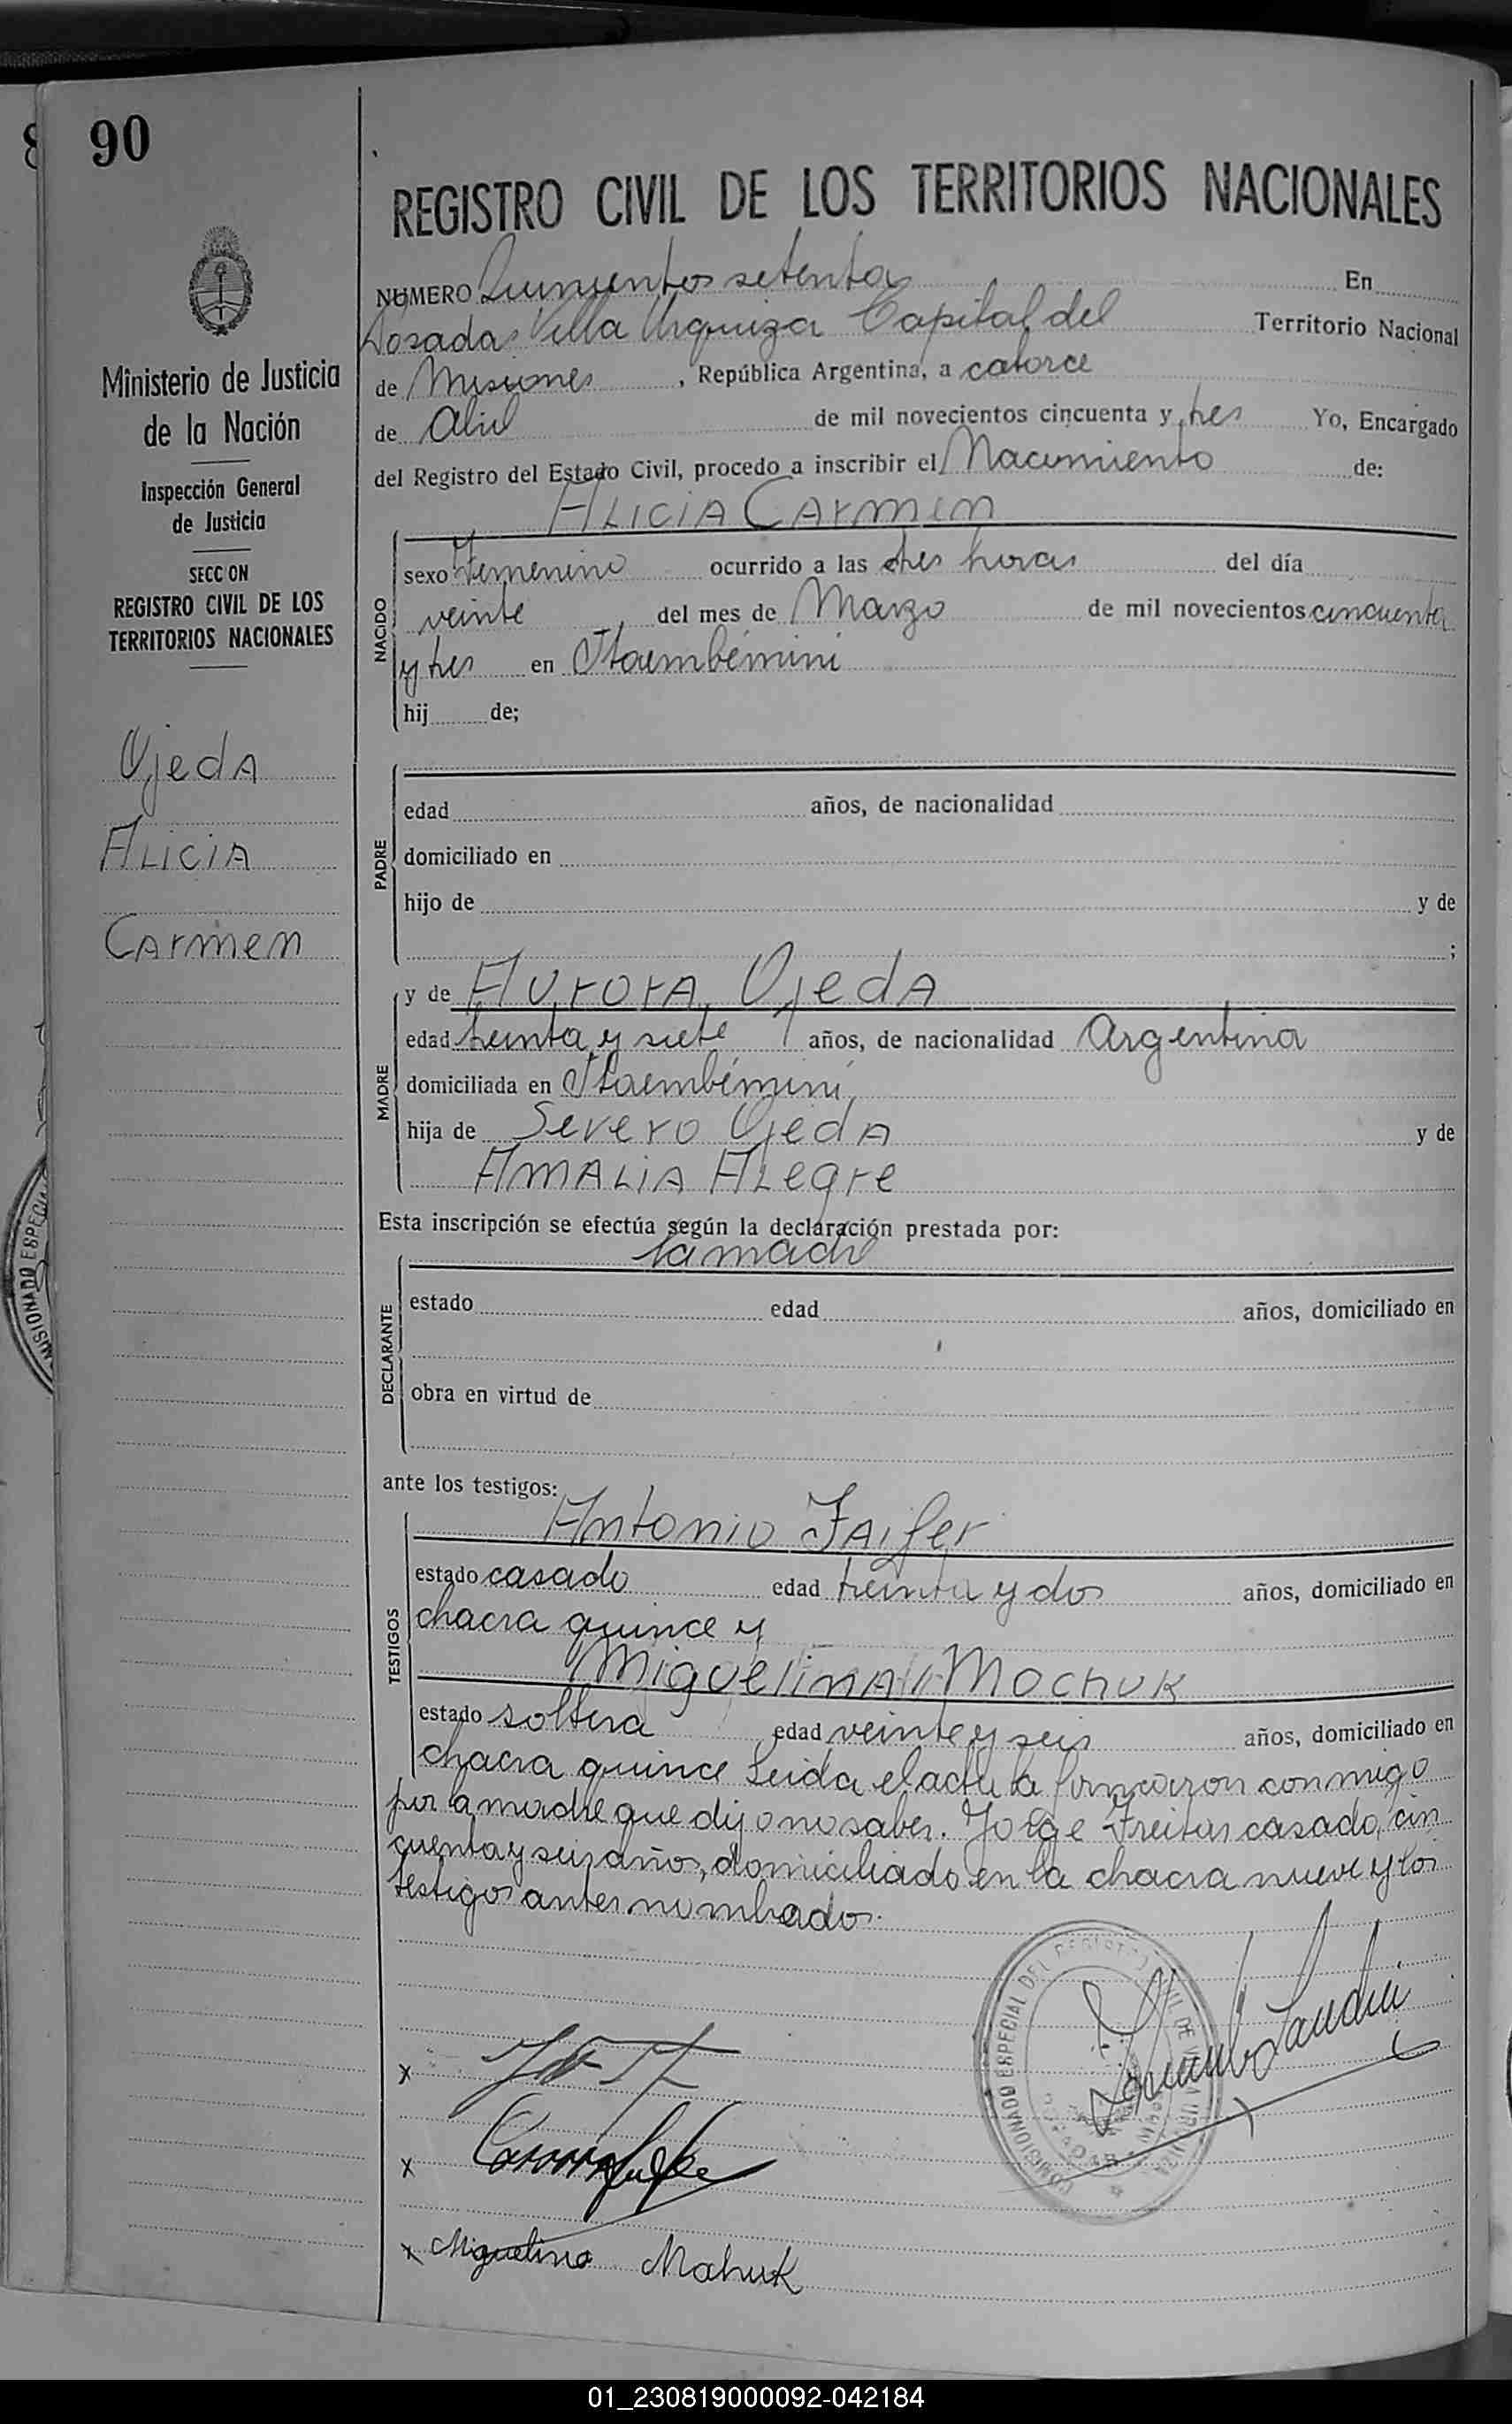 90
REGISTRO CIVIL DE LOS TERRITORIOS NACIONALES
Ministerio de Justicia
de la Nación
Inspección General
de Justicia
SECCION
REGISTRO CIVIL DE LOS
TERRITORIOS NACIONALES
Ojeda
Alicia
Carmen
NUMERO Quinientos setenta En
Posadas Villa Urquiza Capital del Territorio Nacional
de Misiones, República Argentina, a catorce
de Abril de mil novecientos cincuenta y tres Yo, Encargado
del Registro del Estado Civil, procedo a inscribir el Nacimiento de:
Alicia Carmen
NACIDO
sexo Femenino ocurrido a las tres horas del día
veinte del mes de Marzo de mil novecientos cincuenta
y tres en Itaembémini
hij de;
PADRE
edad años, de nacionalidad
domiciliado en
hijo de y de
;
MADRE
y de Aurora Ojeda
edad treinta y siete años, de nacionalidad Argentina
domiciliada en Itaembémini
hija de Severo Ojeda y de
Amalia Alegre
Esta inscripción se efectúa según la declaración prestada por:
la madre
DECLARANTE
estado edad años, domiciliado en
obra en virtud de
ante los testigos:
TESTIGOS
Antonio Faifer
estado casado edad treinta y dos años, domiciliado en
chacra quince y
Miguelina Mochuk
estado soltera edad veinte y seis años, domiciliado en
chacra quince Leida el acta la firmaron conmigo
por la madre que dijo no saber. Jorge Freitas casado, cin
cuenta y seis años, domiciliado en la chacra nueve y los
testigos antes nombrados.
COMISIONADO ESPECIAL DEL REGISTRO CIVIL DE VILLA URQUIZA
x
x
x Miguelina Mahuk
01_230819000092-042184